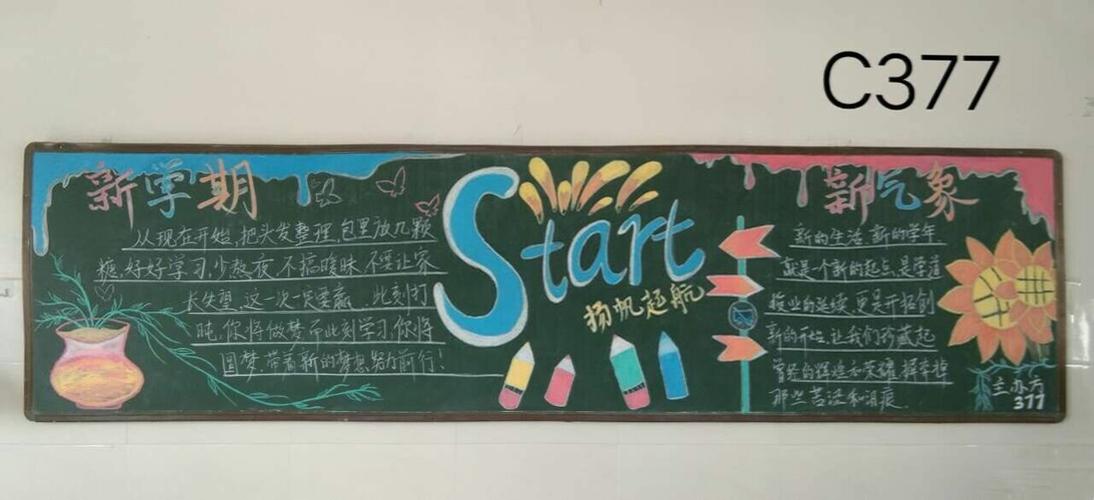 C377
新学期
从现在开始,把头发整理,包里放几颗
糖,好好学习,少熬夜,不搞暧昧,不要让家
长失望,这一次一定要赢。此刻打
盹,你将做梦,而此刻学习,你将
圆梦,带着新的梦想努力前行!
Start
扬帆起航
新气象
新的生活,新的学年
就是一个新的起点,是学道
授业的延续,更是开拓创
新的开始,让我们珍藏起
曾经的辉煌和荣耀,挥去掉
那些苦涩和泪痕.
主办方
377